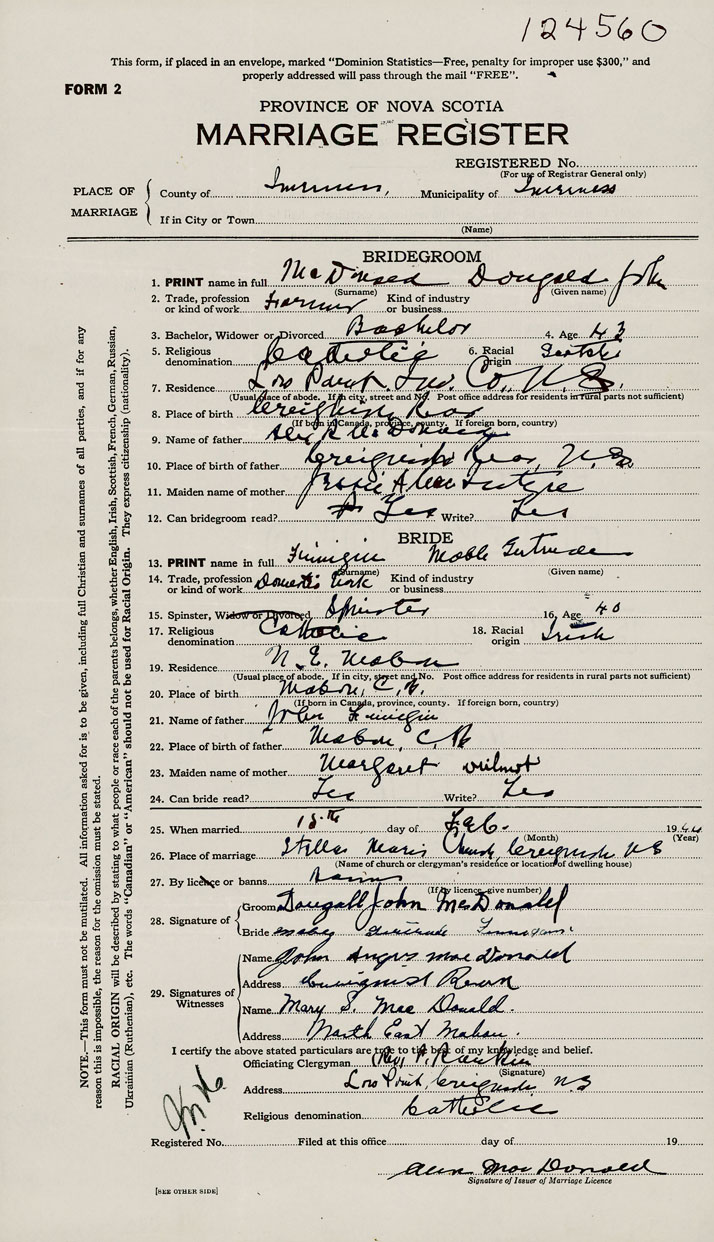 124560
This form, if placed in an envelope, marked "Dominion Statistics—Free, penalty for improper use $300," and
properly addressed will pass through the mail "FREE".
FORM 2
PROVINCE OF NOVA SCOTIA
MARRIAGE REGISTER
REGISTERED No.
(For use of Registrar General only)
PLACE OF MARRIAGE
County of Inverness, Municipality of Inverness
If in City or Town
(Name)
BRIDEGROOM
1. PRINT name in full McDonald Dougald John
(Surname) (Given name)
2. Trade, profession or kind of work Farmer Kind of industry or business
3. Bachelor, Widower or Divorced Bachelor 4. Age 43
5. Religious denomination Catholic 6. Racial Origin Scotch
7. Residence Low Point, Inv. Co., N.S.
(Usual place of abode. If in city, street and No. Post office address for residents in rural parts not sufficient)
8. Place of birth Creignish Rear
(If born in Canada, province, county. If foreign born, country)
9. Name of father
10. Place of birth of father Creignish Rear, N.S.
11. Maiden name of mother Jessie
12. Can bridegroom read? Yes Write? Yes
BRIDE
13. PRINT name in full Finnigin Mable Gertrude
(Surname) (Given name)
14. Trade, profession or kind of work Domestic Work Kind of industry or business
15. Spinster, Widow or Divorced Spinster 16. Age 40
17. Religious denomination Catholic 18. Racial origin Irish
19. Residence N.E. Mabou
(Usual place of abode. If in city, street and No. Post office address for residents in rural parts not sufficient)
20. Place of birth Mabou, C.B.
(If born in Canada, province, county. If foreign born, country)
21. Name of father John Finnigin
22. Place of birth of father Mabou, C.B.
23. Maiden name of mother Margaret Wilmot
24. Can bride read? Yes Write? Yes
25. When married 15th day of Feb. 1944
(Month) (Year)
26. Place of marriage Stella Maris Church, Creignish NS
(Name of church or clergyman's residence or location of dwelling house)
27. By licence or banns banns
(If by licence, give number)
28. Signature of
Groom Dougall John MacDonald
Bride Gertrude
29. Signatures of Witnesses
Name John Angus MacDonald
Address Creignish
Name Mary S. MacDonald.
Address North East Mabou.
I certify the above stated particulars are true to the best of my knowledge and belief.
Officiating Clergyman (Rev) P. Rankin
(Signature)
Address Low Point, Creignish NS
Religious denomination Catholic
Registered No. Filed at this office day of 19
Ann MacDonald
Signature of Issuer of Marriage Licence
[SEE OTHER SIDE]
NOTE.—This form must not be mutilated. All information asked for is to be given, including full Christian and surnames of all parties, and if for any
reason this is impossible, the reason for the omission must be stated.
RACIAL ORIGIN will be described by stating to what people or race each of the parents belongs, whether English, Irish, Scottish, French, German, Russian,
Ukrainian (Ruthenian), etc. The words "Canadian" or "American" should not be used for Racial Origin. They express citizenship (nationality).